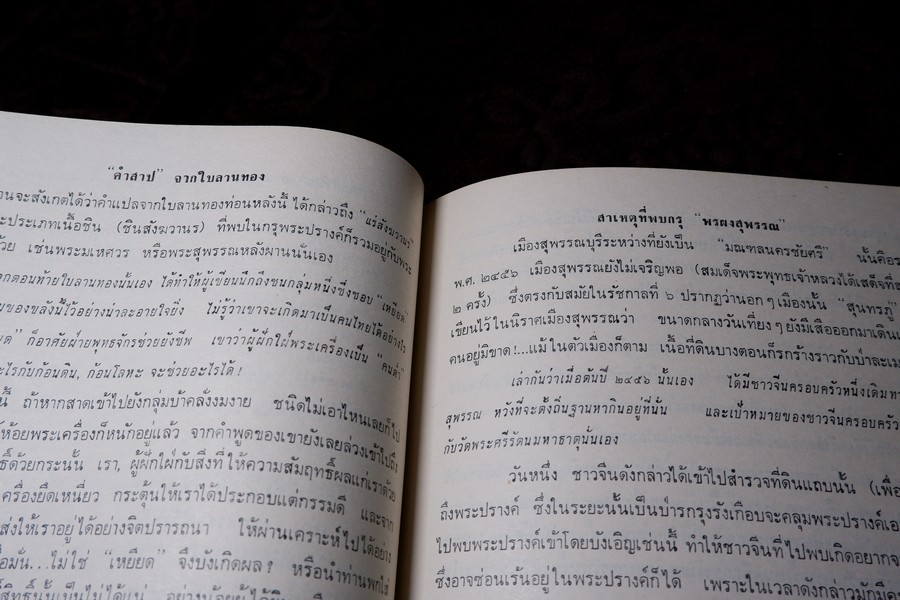 “คำสาป” จากใบลานทอง
านจะสังเกตได้ว่าคำแปลจากใบลานทองท่อนหลังนี้ ได้กล่าวถึง “แร่สังฆวานร”
ะประเภทเนื้อชิน (ชินสังฆวานร) ที่พบในกรุพระปรางค์ก็รวมอยู่กับพระ
ด้วย เช่นพระมเหศวร หรือพระสุพรรณหลังผานนั่นเอง
กตอนท้ายใบลานทองนั้นเอง ได้ทำให้ผู้เขียนนึกถึงชนกลุ่มหนึ่งซึ่งชอบ “เหยียด”
มของขลังนี้ไว้อย่างน่าละอายใจยิ่ง ไม่รู้ว่าเขาจะเกิดมาเป็นคนไทยได้อย่างไร
ยด” ก็อาศัยฝ่ายพุทธจักรช่วยยังชีพ เขาว่าผู้ฝักใฝ่พระเครื่องเป็น “คนต่ำ”
ะไรกับก้อนดิน, ก้อนโลหะ จะช่วยอะไรได้!
นี้ ถ้าหากสาดเข้าไปยังกลุ่มบ้าคลั่งงมงาย ชนิดไม่เอาไหนเลยก็ไป
ห้อยพระเครื่องก็หนักอยู่แล้ว จากคำพูดของเขายังเลยล่วงเข้าไปถึง
ธิ์ด้วยกระนั้น เรา, ผู้ฝักใฝ่กับสิ่งที่ให้ความสัมฤทธิ์ผลแก่เราด้วย
เครื่องยึดเหนี่ยว กระตุ้นให้เราได้ประกอบแต่กรรมดี และจาก
ส่งให้เราอยู่ได้อย่างจิตปรารถนา ให้ผ่านเคราะห์ไปได้อย่าง
อมั่น...ไม่ใช่ “เหยียด” จึงบังเกิดผล? หรือนำท่านพกใช่
สิทธิ์นั้นเป็นไม่ได้แน่
สาเหตุที่พบกรุ “พรผงสุพรรณ”
เมืองสุพรรณบุรีระหว่างที่ยังเป็น “มณฑลนครชัยศรี” นั้นคือร
พ.ศ. ๒๔๕๖ เมืองสุพรรณยังไม่เจริญพอ (สมเด็จพระพุทธเจ้าหลวงได้เสด็จที่ส
๒ ครั้ง) ซึ่งตรงกับสมัยในรัชกาลที่ ๖ ปรากฏว่านอกๆ เมืองนั้น “สุนทรภู่”
เขียนไว้ในนิราศเมืองสุพรรณว่า ขนาดกลางวันเที่ยงๆ ยังมีเสือออกมาเดินเ
คนอยู่มิขาด!...แม้ในตัวเมืองก็ตาม เนื้อที่ดินบางตอนก็รกร้างราวกับป่าละเม
เล่ากันว่าเมื่อต้นปี ๒๔๕๖ นั้นเอง ได้มีชาวจีนครอบครัวหนึ่งเดิมทา
สุพรรณ หวังที่จะตั้งถิ่นฐานหากินอยู่ที่นั่น และเป้าหมายของชาวจีนครอบครัว
กับวัดพระศรีรัตนมหาธาตุนั่นเอง
วันหนึ่ง ชาวจีนดังกล่าวได้เข้าไปสำรวจที่ดินแถบนั้น (เพื่อ
ถึงพระปรางค์ ซึ่งในระยะนั้นเป็นป่ารกรุงรังเกือบจะคลุมพระปรางค์เอ
ไปพบพระปรางค์เข้าโดยบังเอิญเช่นนี้ ทำให้ชาวจีนที่ไปพบเกิดอยากจ
ซึ่งอาจซ่อนเร้นอยู่ในพระปรางค์ก็ได้ เพราะในเวลาดังกล่าวมักมีค